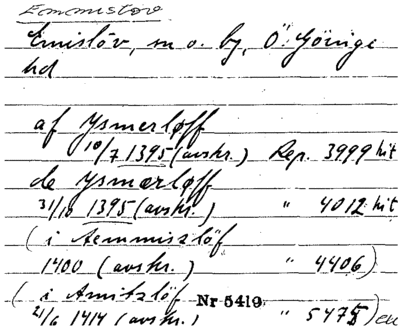 Emmistov
Emislöv, sn o. by, Ö. Göinge
hd
af Ysmerløff
10/7 1395 (avskr.) Rep. 3999 hit
de Ysmærløff
31/10 1395 (avskr.) " 4012 hit
( i Aemmiszlöf
1400 (avskr.) " 4406)
( i Amitzlöf Nr 5419
21/6 1414 (avskr.) " 5475)